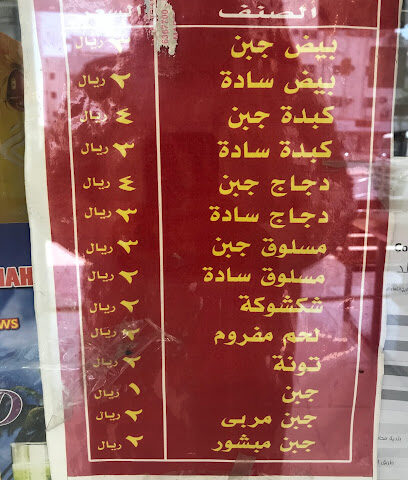 الصنف السعر
بيض جبن ريال
بيض سادة ٢ ريال
كبدة جبن ٤ ريال
كبدة سادة ٣ ريال
دجاج جبن ٤ ريال
دجاج سادة ٣ ريال
مسلوق جبن ٣ ريال
مسلوق سادة ٢ ريال
شكشوكة ٢ ريال
لحم مفروم ريال
تونة ٢ ريال
جبن ١ ريال
جبن مربى ٢ ريال
جبن مبشور ٢ ريال